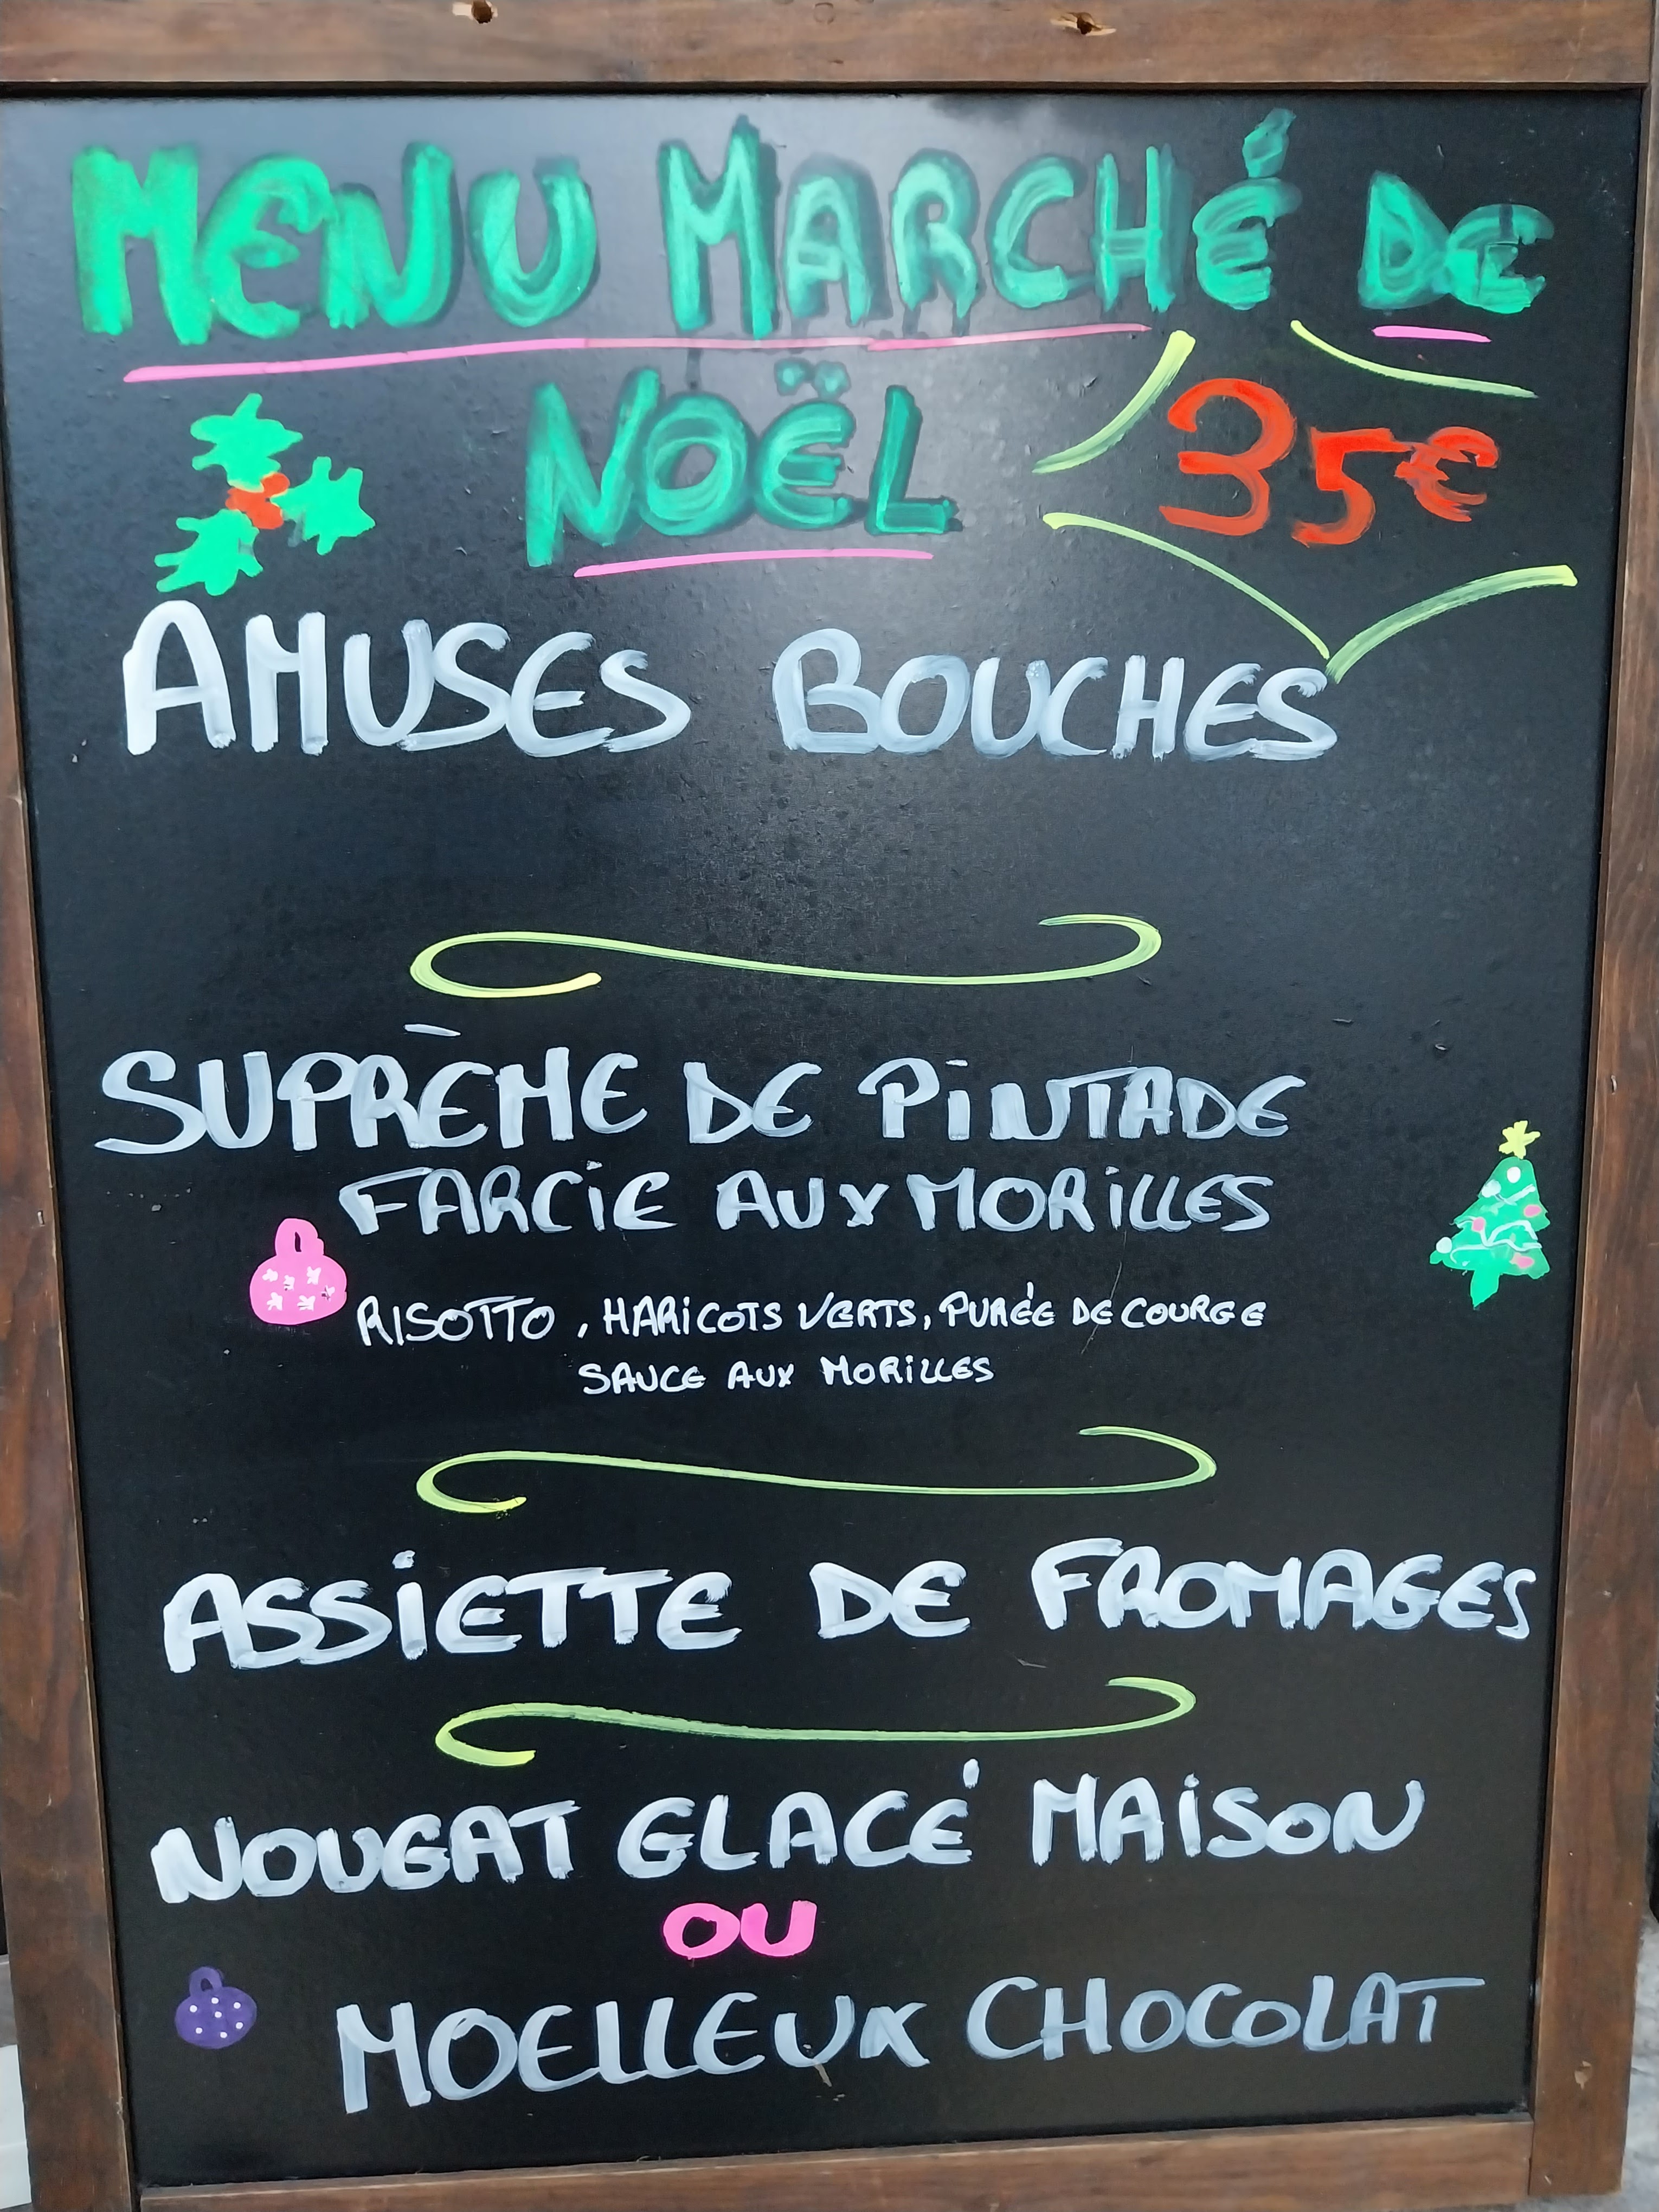 MENU MARCHÉ DE
NOËL 35€
AMUSES BOUCHES
SUPRÊME DE PINTADE
FARCIE AUX MORILLES
RISOTTO, HARICOTS VERTS, PURÉE DE COURGE
SAUCE AUX MORILLES
ASSIETTE DE FROMAGES
NOUGAT GLACÉ MAISON
OU
MOELLEUX CHOCOLAT